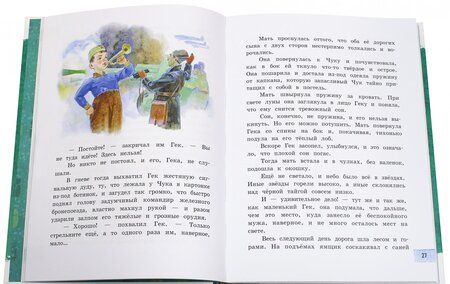 — Постойте! — закричал им Гек. — Вы
не туда идёте! Здесь нельзя!
Но никто не постоял, и его, Гека, не слу-
шали.
В гневе тогда выхватил Гек жестяную сиг-
нальную дуду, ту, что лежала у Чука в картонке
из-под ботинок, и загудел так громко, что быстро
поднял голову задумчивый командир железного
бронепоезда, властно махнул рукой — и разом
ударили залпом его тяжёлые и грозные орудия.
— Хорошо! — похвалил Гек. — Только
стрельните ещё, а то одного раза им, наверное,
мало...
Мать проснулась оттого, что оба её дорогих
сына с двух сторон нестерпимо толкались и во-
рочались.
Она повернулась к Чуку и почувствовала,
как в бок ей ткнуло что-то твёрдое и острое.
Она пошарила и достала из-под одеяла пружину
от капкана, которую запасливый Чук тайно при-
тащил с собой в постель.
Мать швырнула пружину за кровать. При
свете луны она заглянула в лицо Геку и поняла,
что ему снится тревожный сон.
Сон, конечно, не пружина, и его нельзя вы-
кинуть. Но его можно потушить. Мать повернула
Гека со спины на бок и, покачивая, тихонько
подула на его тёплый лоб.
Вскоре Гек засопел, улыбнулся, и это означа-
ло, что плохой сон погас.
Тогда мать встала и в чулках, без валенок,
подошла к окошку.
Ещё не светало, и небо было всё в звёздах.
Иные звёзды горели высоко, а иные склонялись
над чёрной тайгой совсем низко.
И — удивительное дело! — тут же и так же,
как маленький Гек, она подумала, что дальше,
чем это место, куда занесло её беспокойного
мужа, наверное, и не много осталось мест на
свете.
Весь следующий день дорога шла лесом и го-
рами. На подъёмах ямщик соскакивал с саней
27